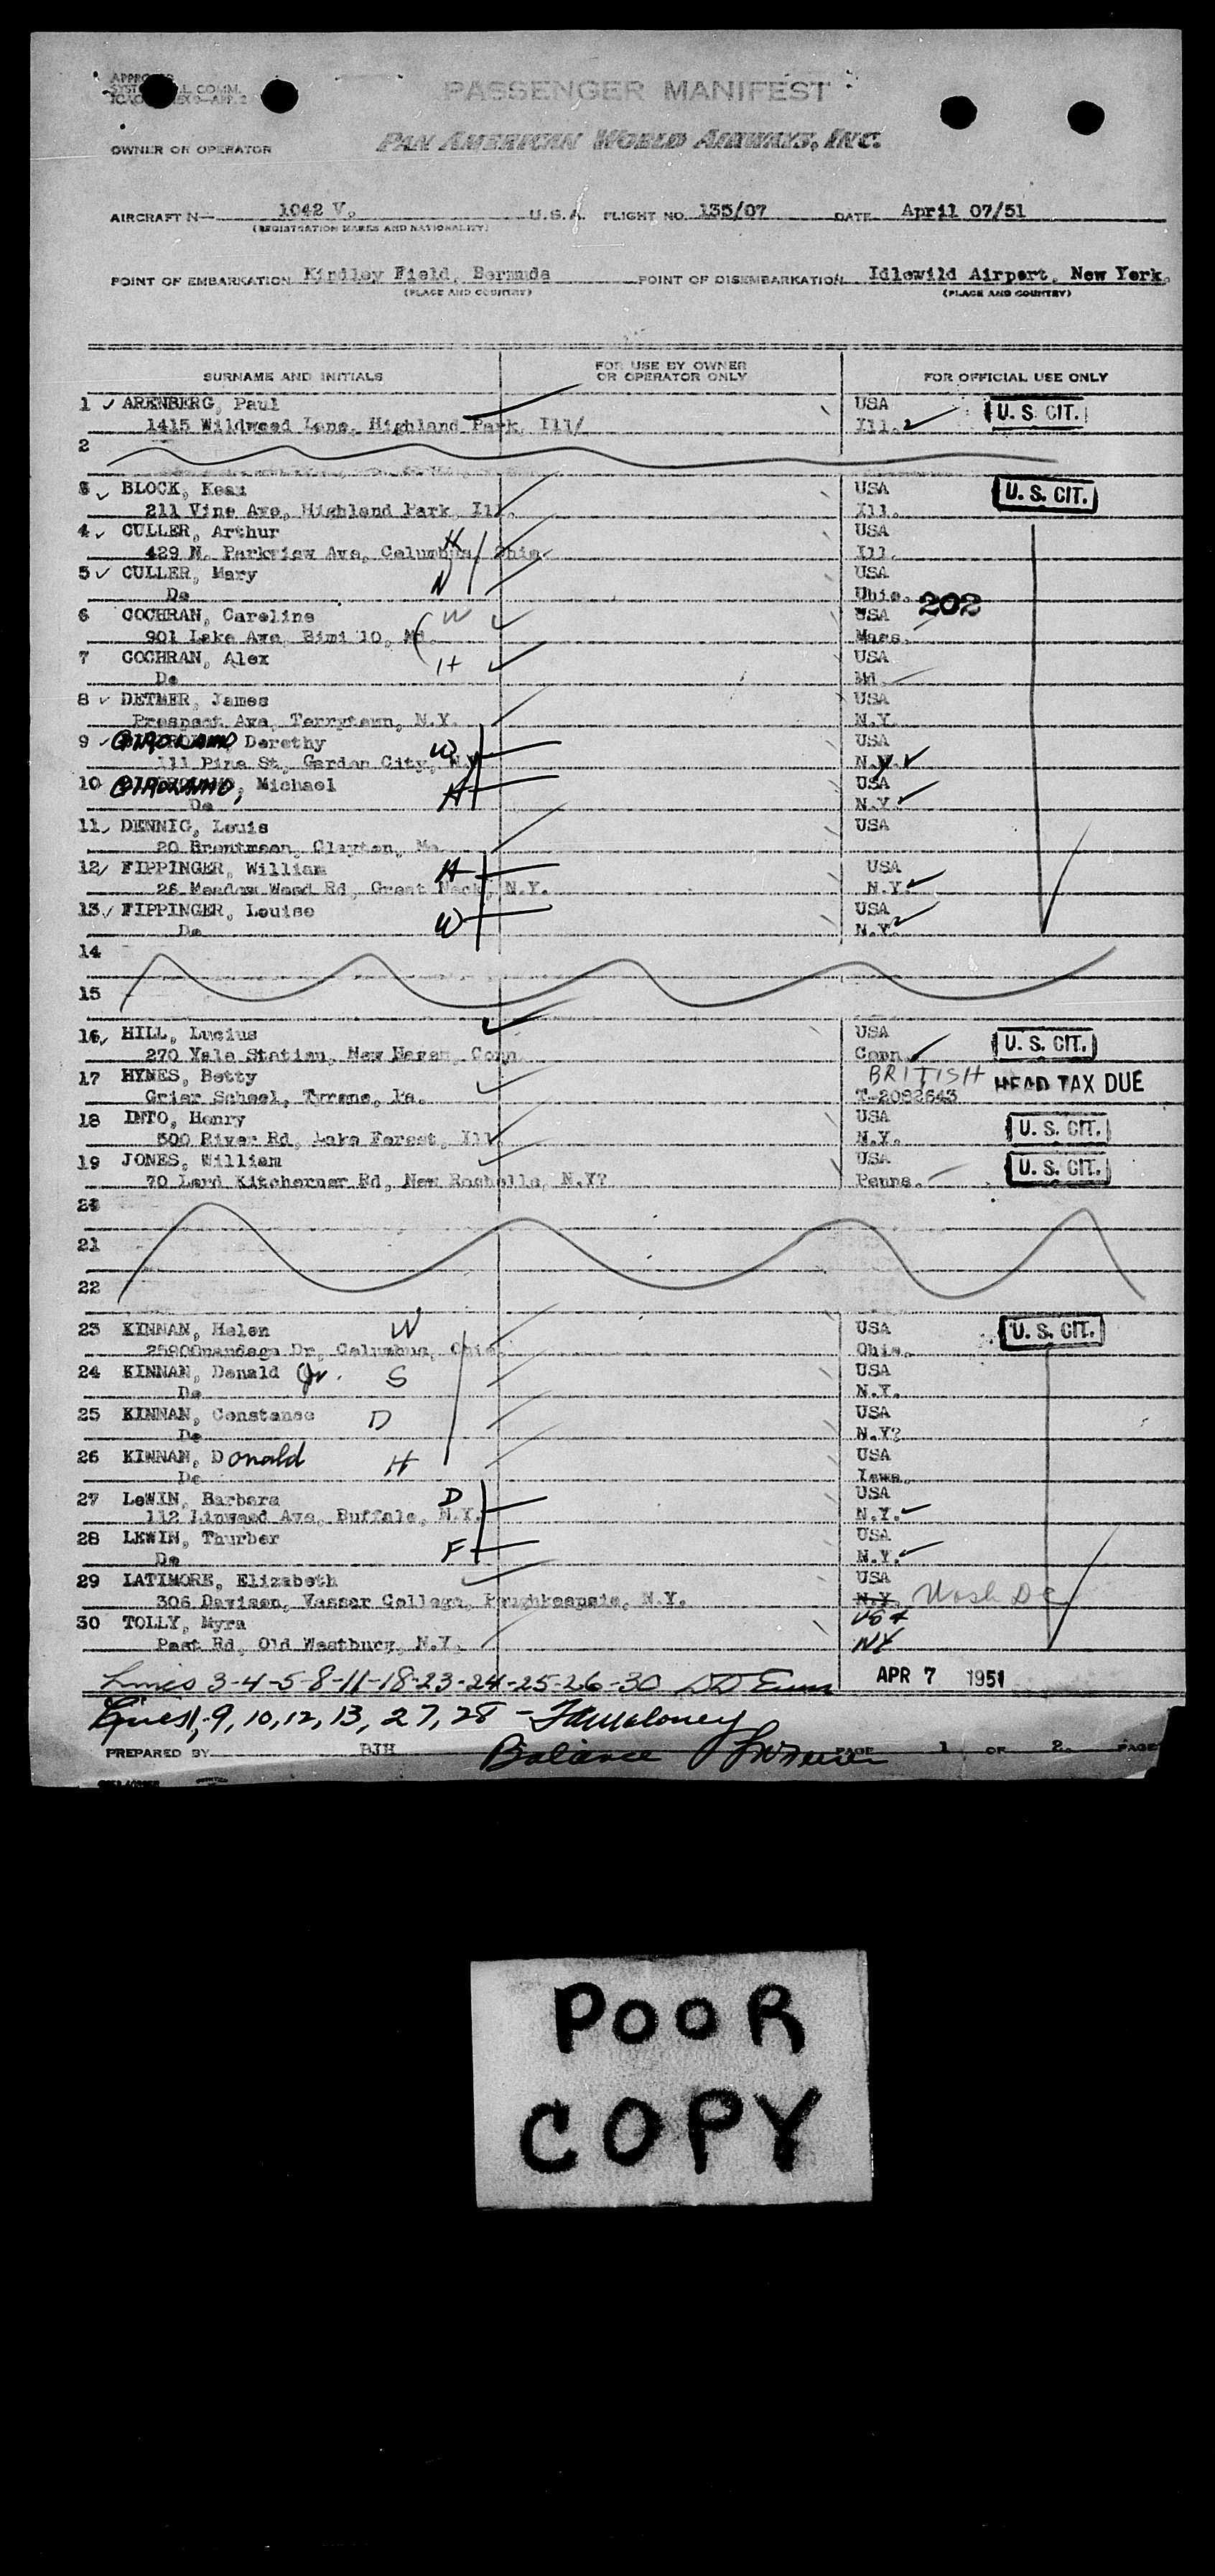 PASSENGER MANIFEST
PAN AMERICAN WORLD AIRWAYS, INC.
OWNER OR OPERATOR
AIRCRAFT N— 1042 V. U.S.A. FLIGHT NO. 135/07 DATE April 07/51
(REGISTRATION MARKS AND NATIONALITY)
POINT OF EMBARKATION Kindley Field, Bermuda POINT OF DISEMBARKATION Idlewild Airport, New York.
(PLACE AND COUNTRY) (PLACE AND COUNTRY)
SURNAME AND INITIALS FOR USE BY OWNER OR OPERATOR ONLY FOR OFFICIAL USE ONLY
1 ARENBERG, Paul USA U. S. CIT.
1415 Wildwood Lane, Highland Park, Ill/ Ill.
2
3 BLOCK, Kean USA U. S. CIT.
211 Vine Ave, Highland Park, Ill. Ill.
4 CULLER, Arthur H USA
429 N. Parkview Ave, Columbus, Ohio Ill.
5 CULLER, Mary W USA
Do Ohio.
6 COCHRAN, Caroline W USA 202
901 Lake Ave, Md. Mass.
7 COCHRAN, Alex H USA
Do Md.
8 DETMER, James USA
Prospect Ave, Terrytown, N.Y. N.Y.
9 Dorothy W USA
111 Pine St, Garden City, N.Y. N.Y.
10 Michael H USA
Do N.Y.
11 DENNIG, Louis USA
20 Brentmoor, Clayton, Mo.
12 FIPPINGER, William H USA
26 Meadow Wood Rd, Great Neck, N.Y. N.Y.
13 FIPPINGER, Louise W USA
Do N.Y.
14
15
16 HILL, Lucius USA U. S. CIT.
270 Yale Station, New Haven, Conn. Conn.
17 HYNES, Betty BRITISH HEAD TAX DUE
Grier School, Tyrone, Pa. T-2082643
18 INTO, Henry USA U. S. CIT.
500 River Rd, Lake Forest, Ill. N.Y.
19 JONES, William USA U. S. CIT.
70 Lord Kitcherner Rd, New Rochelle, N.Y? Penna.
20
21
22
23 KINNAN, Helen W USA U. S. CIT.
2590Onandaga Dr, Columbus, Ohio. Ohio.
24 KINNAN, Donald Jr. S USA
Do N.Y.
25 KINNAN, Constance D USA
Do N.Y?
26 KINNAN, Donald H USA
Do Iowa.
27 LeWIN, Barbara D USA
112 Linwood Ave, Buffalo, N.Y. N.Y.
28 LEWIN, Thurber F USA
Do N.Y.
29 LATIMORE, Elizabeth USA
306 Davison, Vassar College, Poughkeepsie, N.Y. N.Y. Wash DC
30 TOLLY, Myra USA
Post Rd, Old Westbury, N.Y. NY
Lines 3-4-5-8-11-18-23-24-25-26-30 APR 7 1951
Lines 1,-9,10,12,13,27,28 -
PREPARED BY BJH Balance PAGE 1 OF 2. PAGE
POOR
COPY